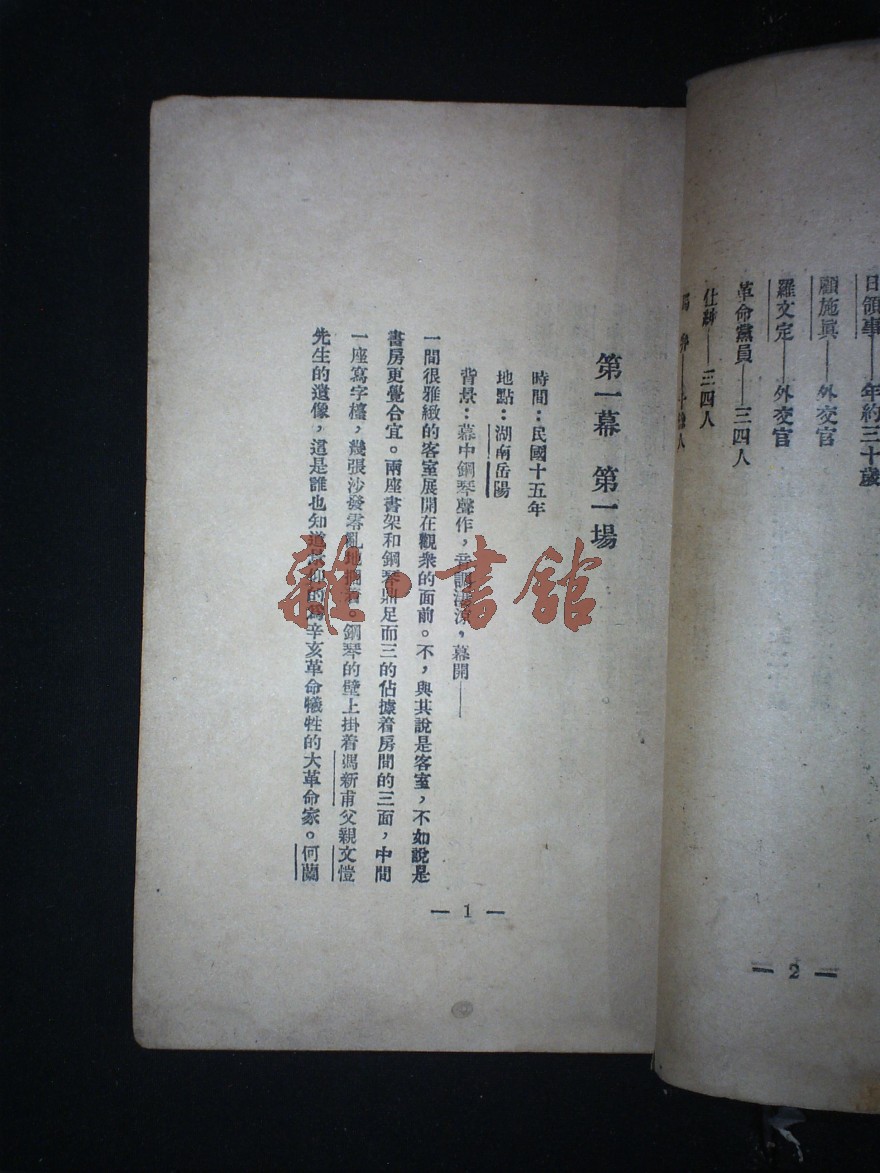 日領事——年約三十歲
顧施眞——外交官
羅文定——外交官
革命黨員——三四人
仕紳——三四人
人
— 2 —
第一幕 第一場
時間：民國十五年
地點：湖南岳陽
背景：幕中鋼琴聲作，音調淒涼，幕開——
一間很雅緻的客室展開在觀衆的面前。不，與其說是客室，不如說是
書房更覺合宜。兩座書架和鋼琴鼎足而三的佔據着房間的三面，中間
一座寫字檯，幾張沙發零亂地擱着。鋼琴的壁上掛着馮新甫父親文愷
先生的遺像，這是誰也知道的爲辛亥革命犧牲的大革命家。何蘭
— 1 —
雜·書館